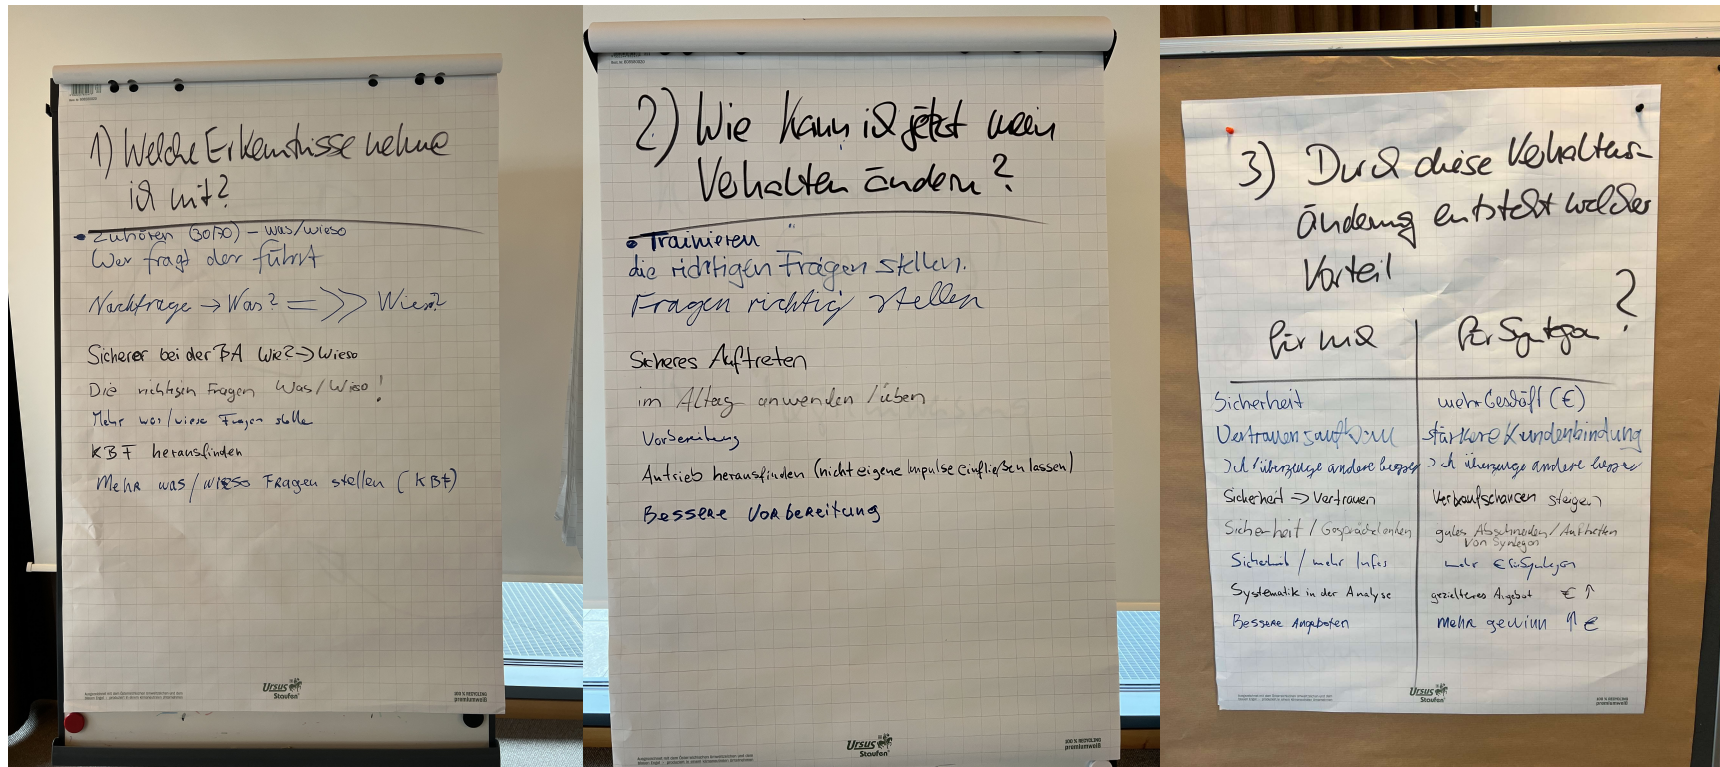 1) Welche Erkenntnisse nehme
ich mit?
• Zuhören (30/70) – was/wieso
Wer fragt der führt
Nachfrage → Was? => >> Wieso?
Sicherer bei der BA Wie? → Wieso
Die richtigen Fragen Was/Wieso!
Mehr was/wieso Fragen stellen
KBF herausfinden
Mehr was/wieso Fragen stellen (KBF)
Ursus
Staufen
100 % RECYCLING
premiumweiß
2) Wie kann ich jetzt mein
Verhalten ändern?
• Trainieren
die richtigen Fragen stellen.
Fragen richtig stellen
Sicheres Auftreten
im Altag anwenden / üben
Vorbereitung
Antrieb herausfinden (nicht eigene Impulse einfließen lassen)
Bessere Vorbereitung
Ursus
Staufen
100 % RECYCLING
premiumweiß
3) Durch diese Verhaltens-
änderung entsteht welcher
Vorteil
?
für mich
für Syntegon
Sicherheit
mehr Geschäft (€)
Vertrauensaufbau
stärkere Kundenbindung
Ich überzeuge andere besser
Ich überzeuge andere besser
Sicherheit → Vertrauen
Verkaufschancen steigen
Sicherheit / Gespräche lenken
gutes Abschneiden / Auftreten
von Syntegon
Sicherheit / mehr Infos
mehr € für Syntegon
Systematik in der Analyse
gezielteres Angebot € ↑
Bessere Angeboten
Mehr gewinn ⇑ €
Ursus
Staufen
100 % RECYCLING
premiumweiß